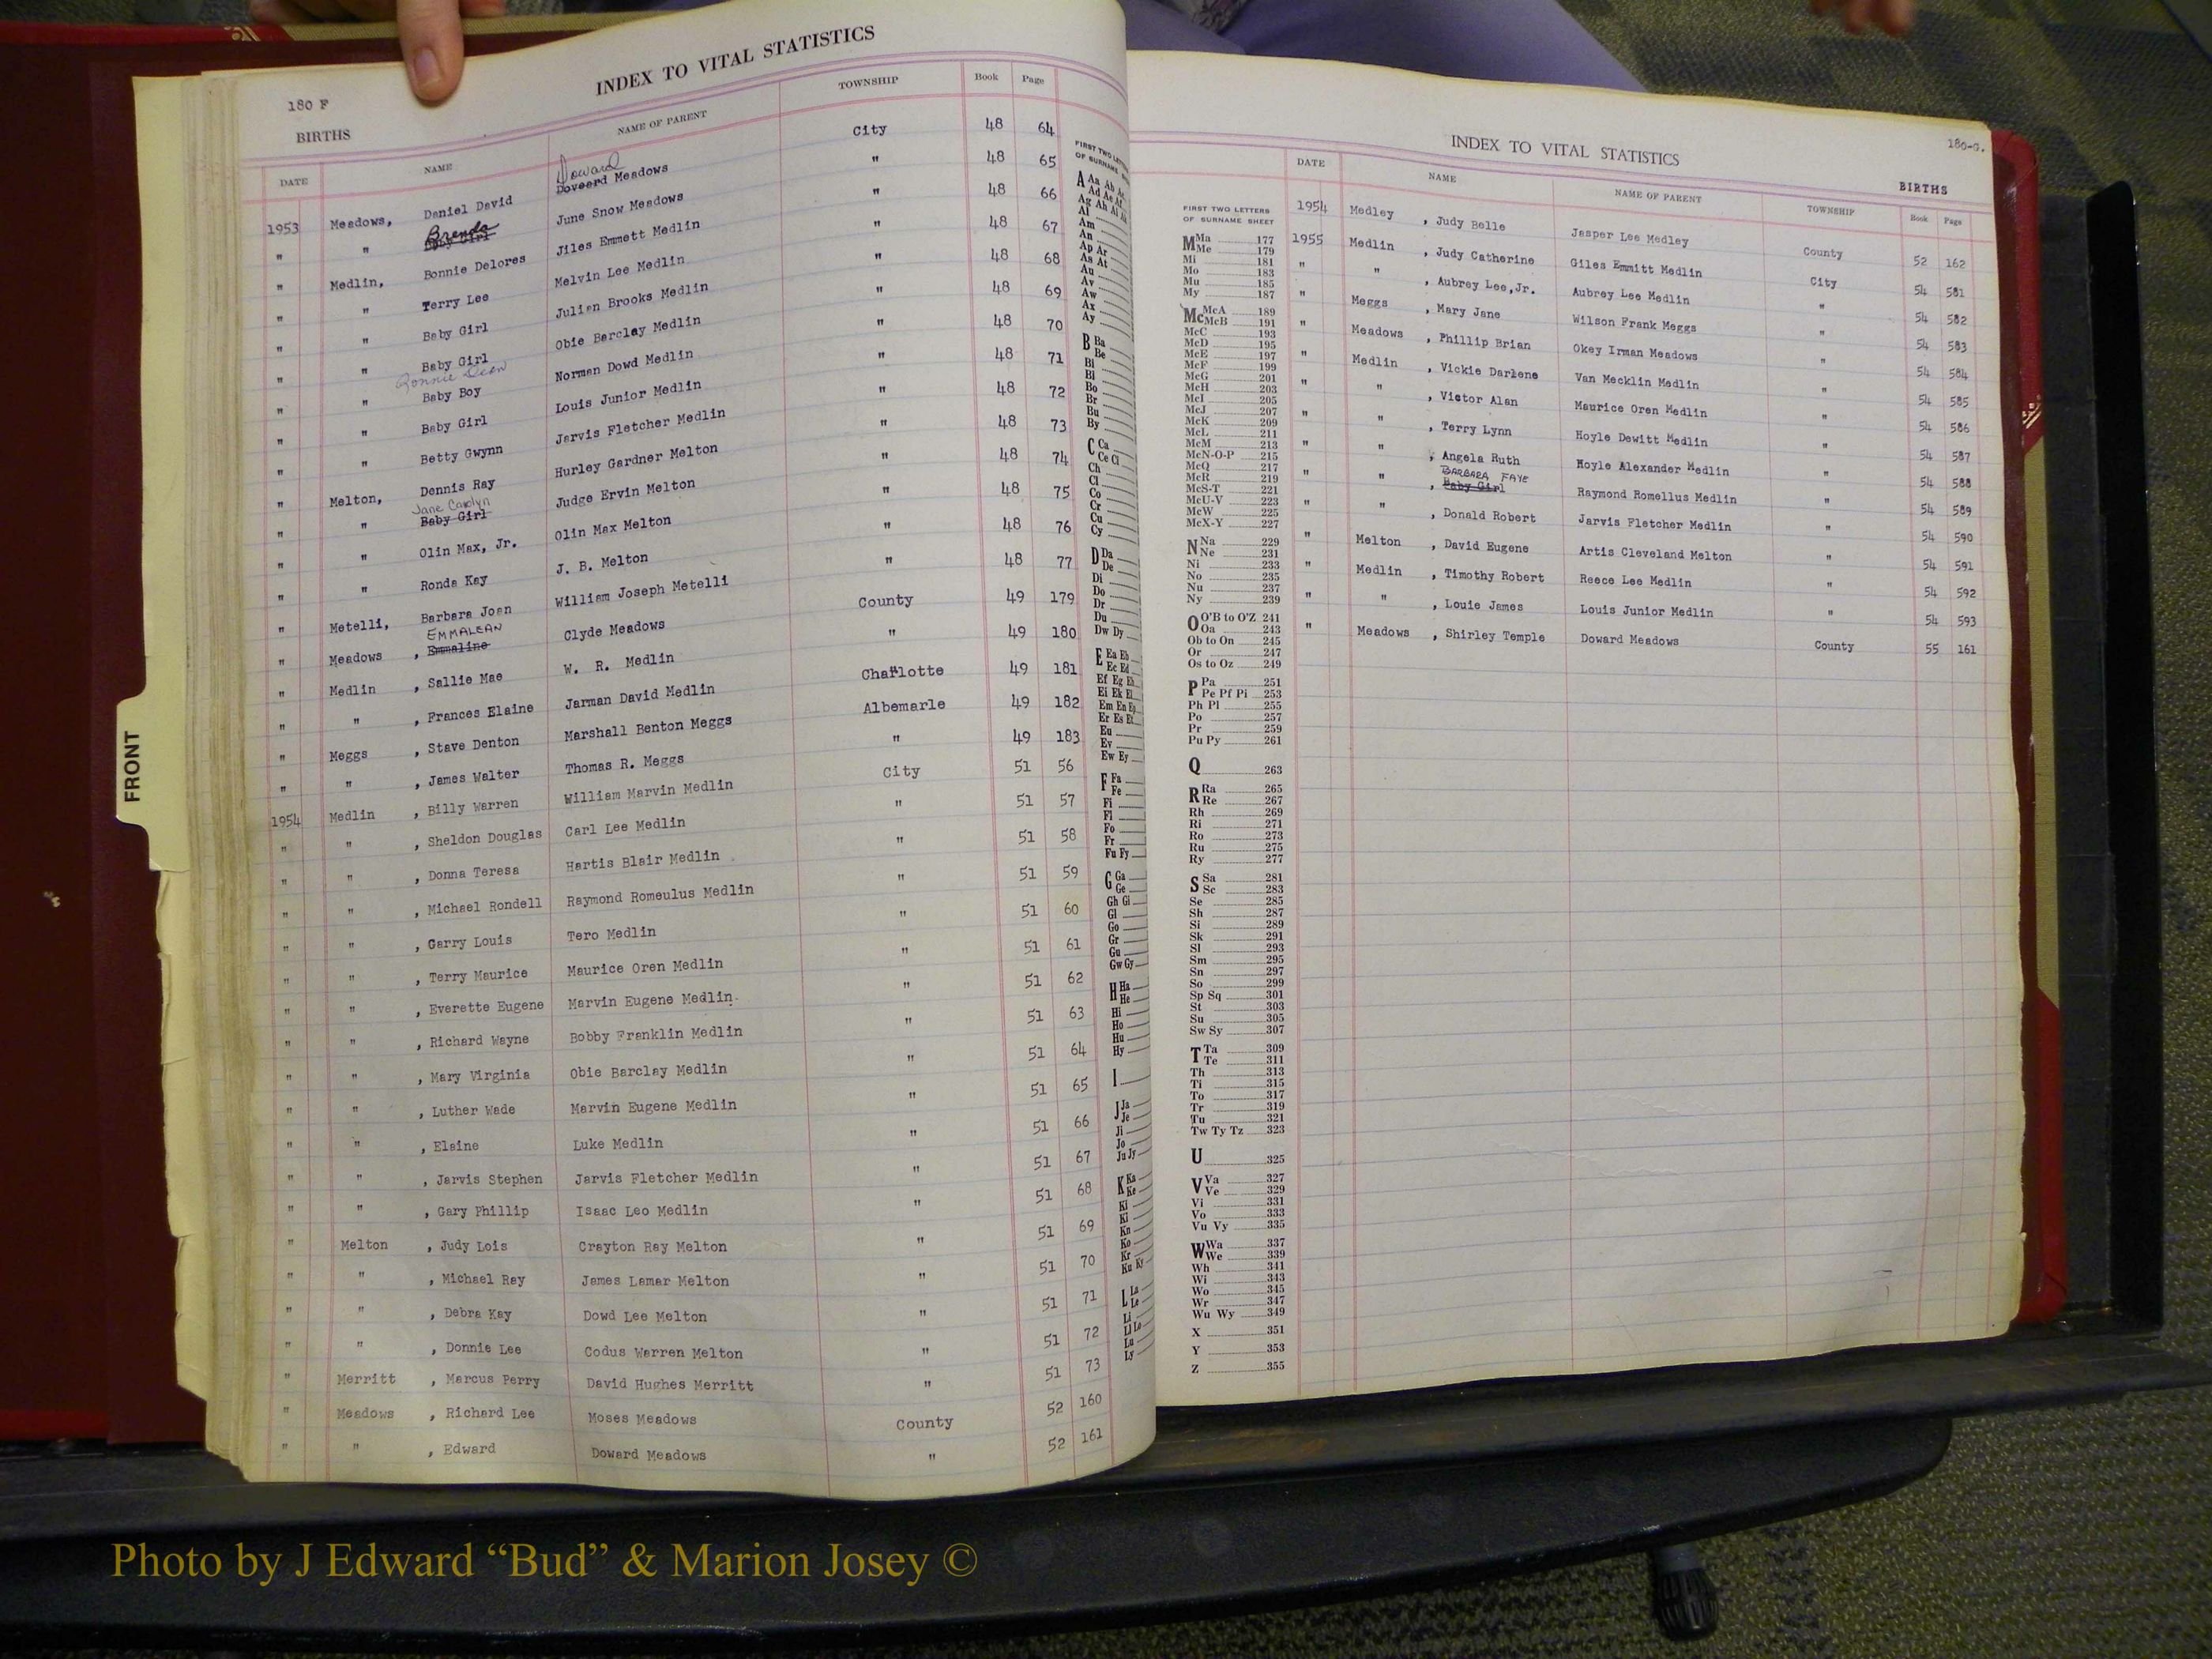 180 F
INDEX TO VITAL STATISTICS
BIRTHS
DATE NAME NAME OF PARENT TOWNSHIP Book Page
1953 Meadows, Daniel David Doward Doveerd Meadows City 48 64
" " Brenda Baby Girl June Snow Meadows " 48 65
" Medlin, Bonnie Delores Jiles Emmett Medlin " 48 66
" " Terry Lee Melvin Lee Medlin " 48 67
" " Baby Girl Julian Brooks Medlin " 48 68
" " Baby Girl Obie Barclay Medlin " 48 69
" " Baby Boy Norman Dowd Medlin " 48 70
" " Baby Girl Louis Junior Medlin " 48 71
" " Betty Gwynn Jarvis Fletcher Medlin " 48 72
" Melton, Dennis Ray Hurley Gardner Melton " 48 73
" " Jane Carolyn Baby Girl Judge Ervin Melton " 48 74
" " Olin Max, Jr. Olin Max Melton " 48 75
" " Ronda Kay J. B. Melton " 48 76
" Metelli, Barbara Joan William Joseph Metelli " 48 77
" Meadows , EMMALEAN Emmaline Clyde Meadows County 49 179
" Medlin , Sallie Mae W. R. Medlin " 49 180
" " , Frances Elaine Jarman David Medlin Charlotte 49 181
" Meggs , Stave Denton Marshall Benton Meggs Albemarle 49 182
" " , James Walter Thomas R. Meggs " 49 183
1954 Medlin , Billy Warren William Marvin Medlin City 51 56
" " , Sheldon Douglas Carl Lee Medlin " 51 57
" " , Donna Teresa Hartis Blair Medlin " 51 58
" " , Michael Rondell Raymond Romeulus Medlin " 51 59
" " , Garry Louis Tero Medlin " 51 60
" " , Terry Maurice Maurice Oren Medlin " 51 61
" " , Everette Eugene Marvin Eugene Medlin " 51 62
" " , Richard Wayne Bobby Franklin Medlin " 51 63
" " , Mary Virginia Obie Barclay Medlin " 51 64
" " , Luther Wade Marvin Eugene Medlin " 51 65
" " , Elaine Luke Medlin " 51 66
" " , Jarvis Stephen Jarvis Fletcher Medlin " 51 67
" " , Gary Phillip Isaac Leo Medlin " 51 68
" Melton , Judy Lois Crayton Ray Melton " 51 69
" " , Michael Ray James Lamar Melton " 51 70
" " , Debra Kay Dowd Lee Melton " 51 71
" " , Donnie Lee Codus Warren Melton " 51 72
" Merritt , Marcus Perry David Hughes Merritt " 51 73
" Meadows , Richard Lee Moses Meadows County 52 160
" " , Edward Doward Meadows " 52 161
FRONT
FIRST TWO LETTERS
OF SURNAME
A Aa Ab Ac
Ad Ae Af
Ag Ah Ai
Al
Am
An
Ap Ar
As At
Au
Av
Aw
Ax
Ay
B Ba
Be
Bi
Bl
Bo
Br
Bu
By
C Ca
Ce Ci
Ch
Cl
Co
Cr
Cu
Cy
D Da
De
Di
Do
Dr
Du
Dw Dy
E Ea Eb
Ec Ed
Ef Eg Eh
Ei Ek El
Em En Ep
Er Es Et
Eu
Ev
Ew Ey
F Fa
Fe
Fi
Fl
Fo
Fr
Fu Fy
G Ga
Ge
Gh Gi
Gl
Go
Gr
Gu
Gw Gy
H Ha
He
Hi
Ho
Hu
Hy
I
J Ja
Je
Ji
Jo
Ju Jy
K Ka
Ke
Ki
Kl
Kn
Ko
Kr
Ku Ky
L La
Le
Li
Ll Lo
Lu
Ly
180-G.
INDEX TO VITAL STATISTICS
BIRTHS
DATE NAME NAME OF PARENT TOWNSHIP Book Page
1954 Medley , Judy Belle Jasper Lee Medley County 52 162
1955 Medlin , Judy Catherine Giles Emmitt Medlin City 54 581
" " , Aubrey Lee,Jr. Aubrey Lee Medlin " 54 582
" Meggs , Mary Jane Wilson Frank Meggs " 54 583
" Meadows , Phillip Brian Okey Irman Meadows " 54 584
" Medlin , Vickie Darlene Van Mecklin Medlin " 54 585
" " , Victor Alan Maurice Oren Medlin " 54 586
" " , Terry Lynn Hoyle Dewitt Medlin " 54 587
" " , Angela Ruth Hoyle Alexander Medlin " 54 588
" " , BARBARA FAYE Baby Girl Raymond Romellus Medlin " 54 589
" " , Donald Robert Jarvis Fletcher Medlin " 54 590
" Melton , David Eugene Artis Cleveland Melton " 54 591
" Medlin , Timothy Robert Reece Lee Medlin " 54 592
" " , Louie James Louis Junior Medlin " 54 593
" Meadows , Shirley Temple Doward Meadows County 55 161
FIRST TWO LETTERS
OF SURNAME SHEET
M Ma 177
Me 179
Mi 181
Mo 183
Mu 185
My 187
Mc McA 189
McB 191
McC 193
McD 195
McE 197
McF 199
McG 201
McH 203
McI 205
McJ 207
McK 209
McL 211
McM 213
McN-O-P 215
McQ 217
McR 219
McS-T 221
McU-V 223
McW 225
McX-Y 227
N Na 229
Ne 231
Ni 233
No 235
Nu 237
Ny 239
O O'B to O'Z 241
Oa 243
Ob to On 245
Or 247
Os to Oz 249
P Pa 251
Pe Pf Pi 253
Ph Pl 255
Po 257
Pr 259
Pu Py 261
Q 263
R Ra 265
Re 267
Rh 269
Ri 271
Ro 273
Ru 275
Ry 277
S Sa 281
Sc 283
Se 285
Sh 287
Si 289
Sk 291
Sl 293
Sm 295
Sn 297
So 299
Sp Sq 301
St 303
Su 305
Sw Sy 307
T Ta 309
Te 311
Th 313
Ti 315
To 317
Tr 319
Tu 321
Tw Ty Tz 323
U 325
V Va 327
Ve 329
Vi 331
Vo 333
Vu Vy 335
W Wa 337
We 339
Wh 341
Wi 343
Wo 345
Wr 347
Wu Wy 349
X 351
Y 353
Z 355
Photo by J Edward “Bud” & Marion Josey ©